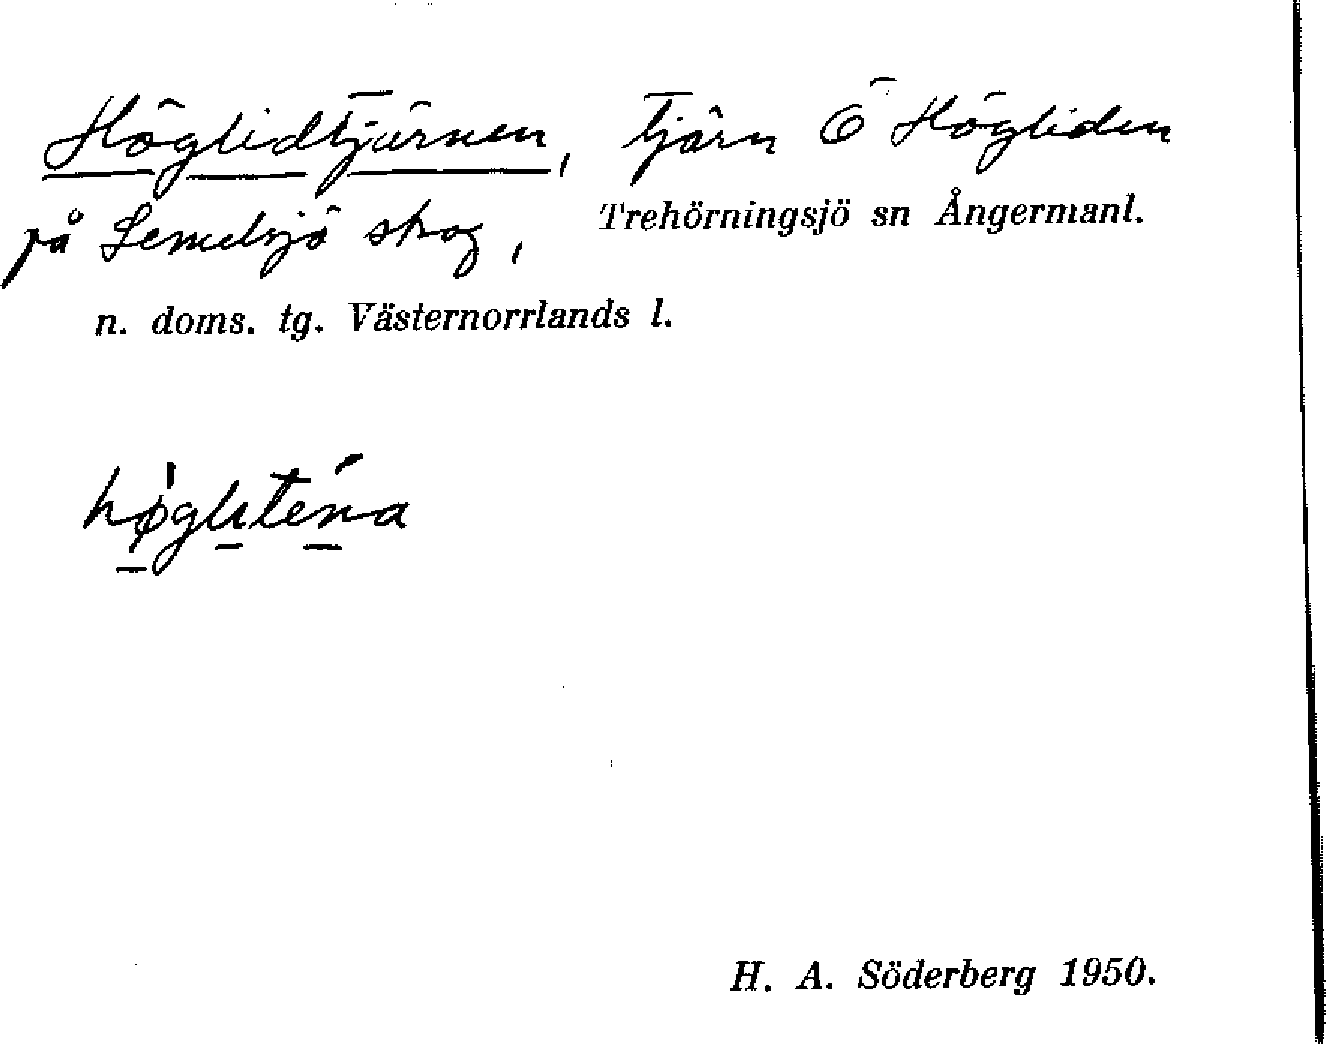 Höglidtjärnen, Tjärn Ö Högliden
på Lemelsjö skog, Trehörningsjö sn Ångermanl.
n. doms. tg. Västernorrlands l.
H. A. Söderberg 1950.